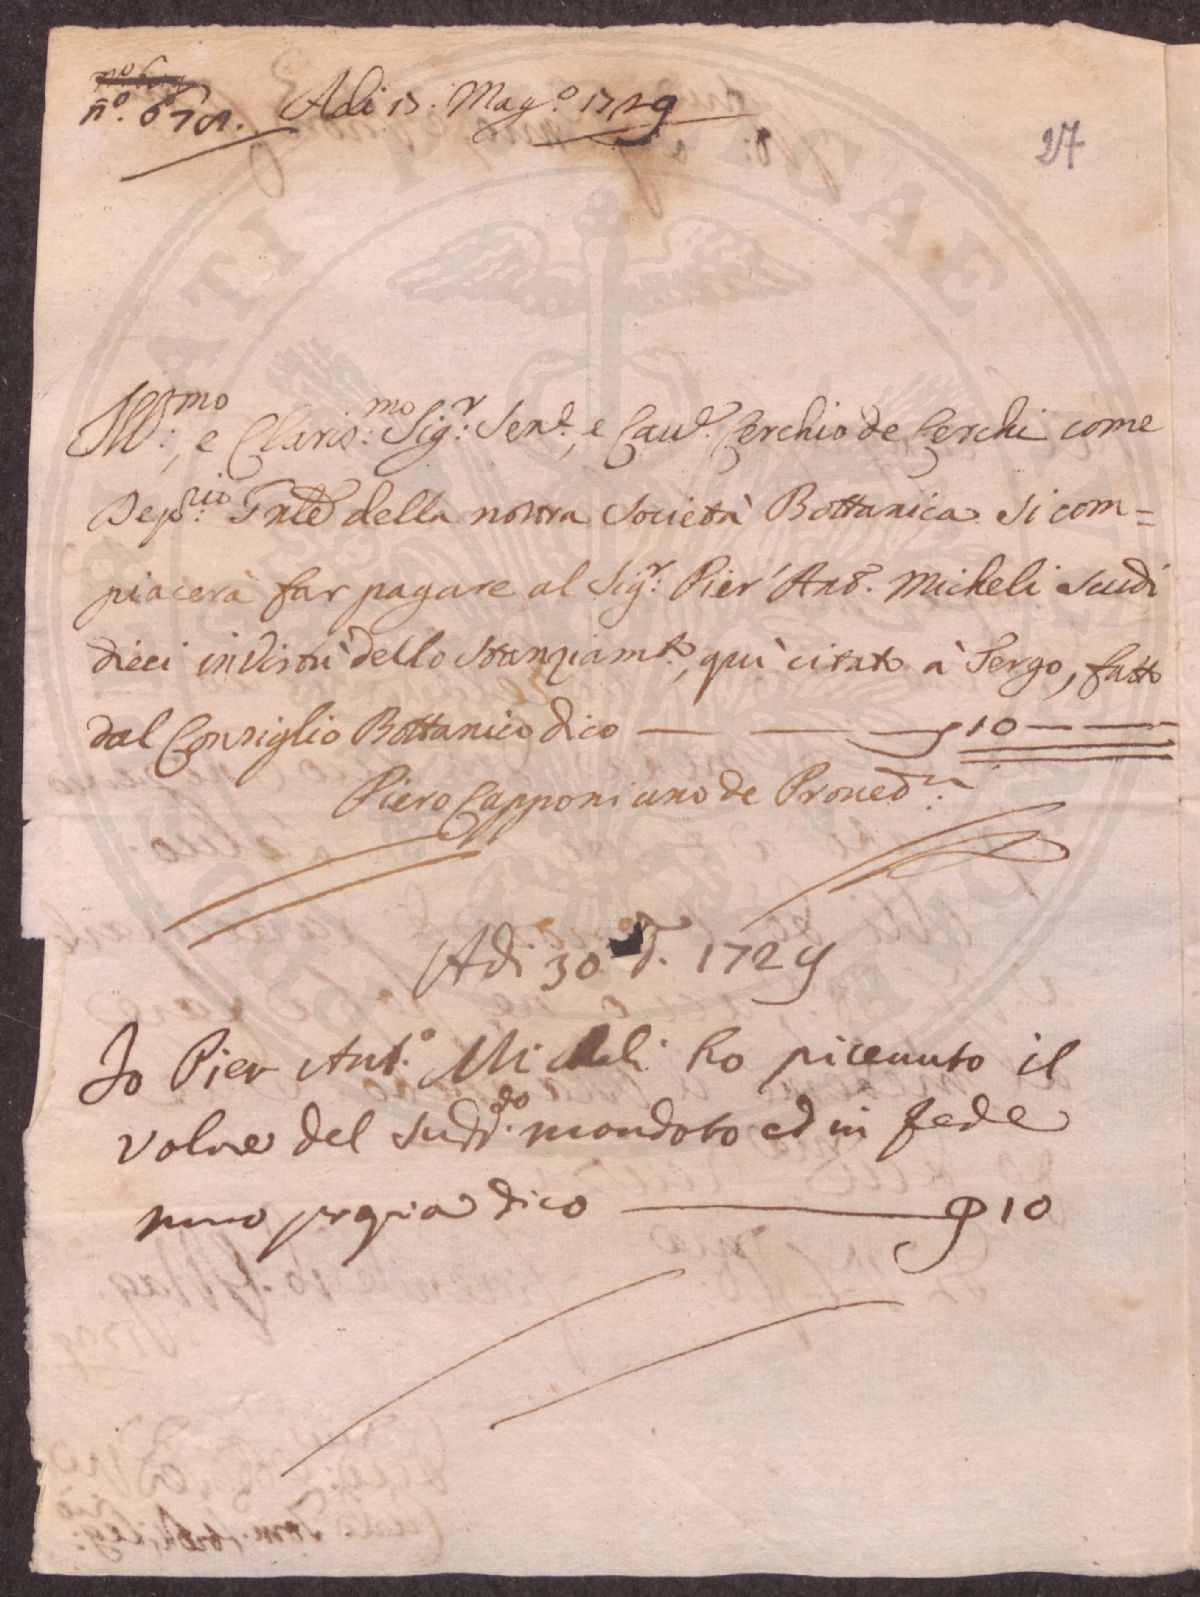 nº. 678. Adi 13. Magº. 1729
27
Ill:mo, e Claris:mo Sig:r Senre, e Cavre. Cerchio de Cerchi come
Dep:rio Gnle della nostra Società Bottanica si com=
piacerà far pagare al Sig:r Pier' Antº. Micheli scudi
dieci in virtù dello stanziamto, quì citato à Tergo, fatto
dal Consiglio Bottanico dico — — — 10 — —
Piero Capponi uno de Proved:ri
Adi 30 dº. 1729
Io Pier Ant.º Micheli ho riceuuto il
valore del sudd:do mandato ed in fede
mano propria dico — 10